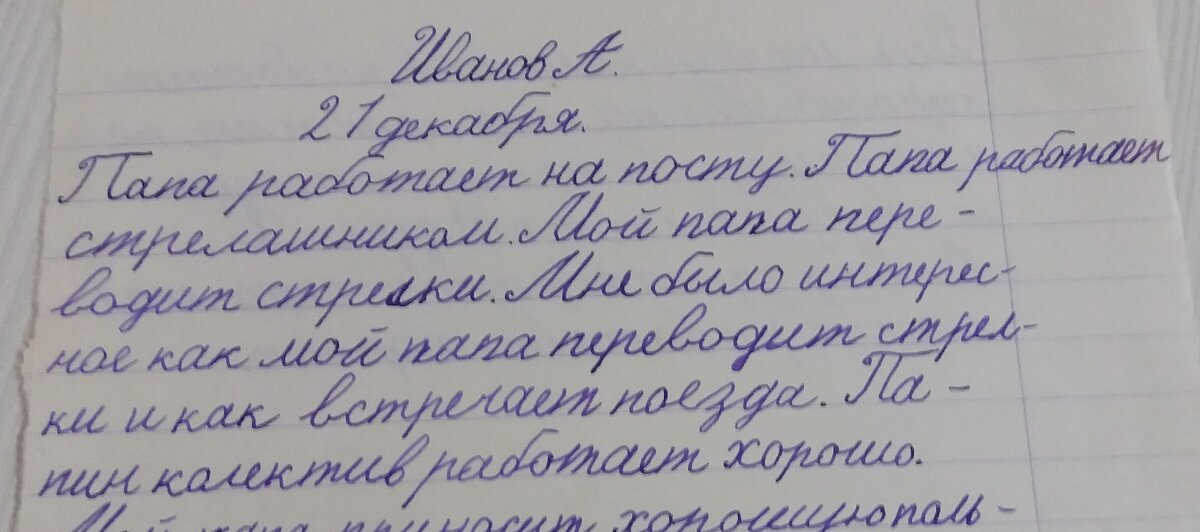 Иванов А.
21 декабря.
Папа работает на посту. Папа работает
стрелашником. Мой папа пере-
водит стрелки. Мне было интерес-
ное как мой папа переводит стрел-
ки и как встречает поезда. Па-
пин колектив работает хорошо.
Мой папа приносит хорошую поль-